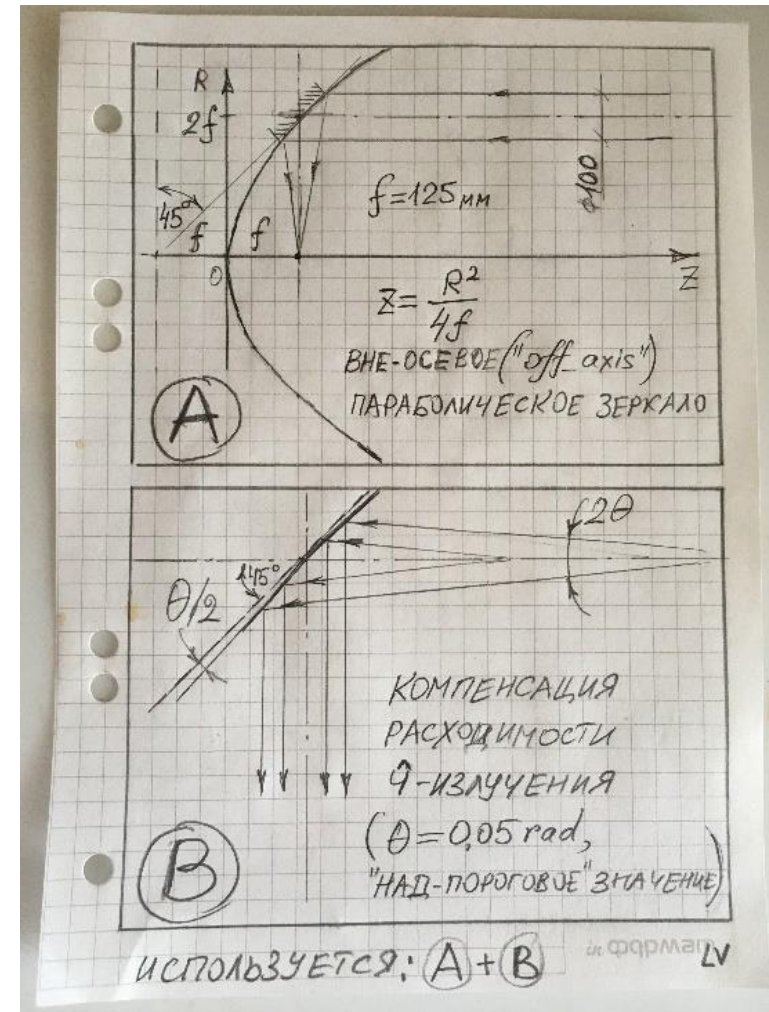 R
2f
45°
f
f
0
f=125 мм
ø100
Z
Z = R²/4f
ВНЕ-ОСЕВОЕ ("off_axis")
ПАРАБОЛИЧЕСКОЕ ЗЕРКАЛО
A
2θ
45°
θ/2
КОМПЕНСАЦИЯ
РАСХОДИМОСТИ
-ИЗЛУЧЕНИЯ
(θ=0,05 rad,
"НАД-ПОРОГОВОЕ" ЗНАЧЕНИЕ)
B
ИСПОЛЬЗУЕТСЯ: A + B
in формат
LV